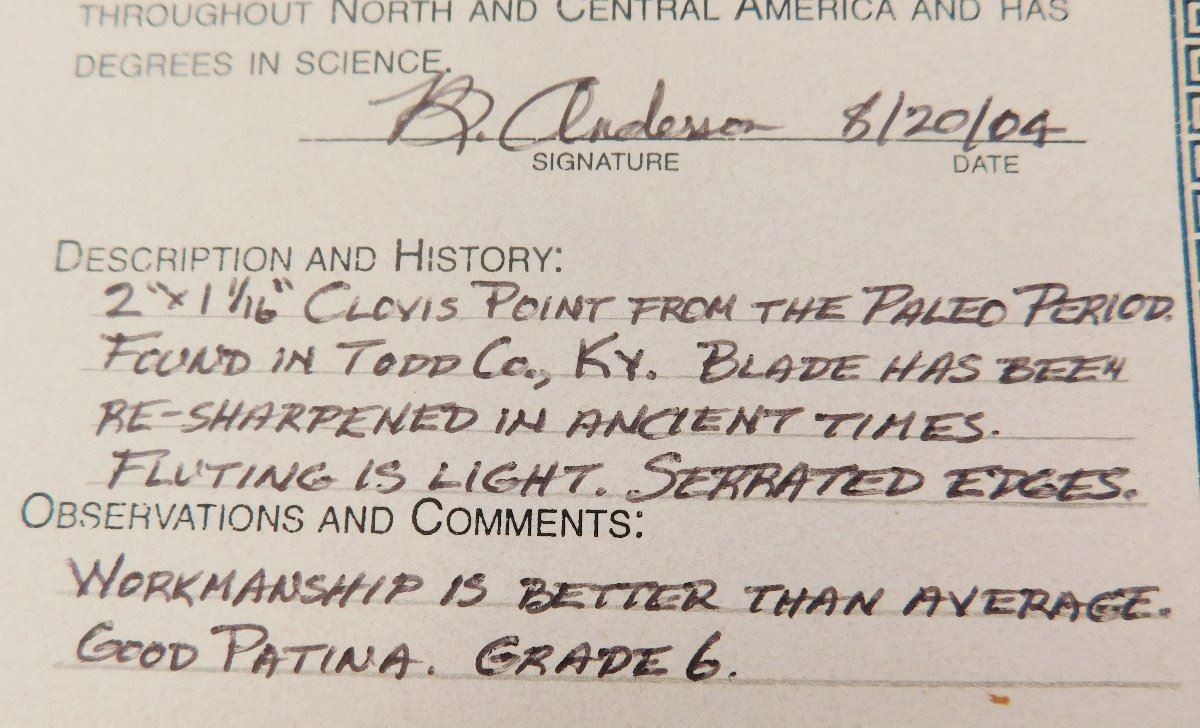 THROUGHOUT NORTH AND CENTRAL AMERICA AND HAS
DEGREES IN SCIENCE.
B. Anderson 8/20/04
SIGNATURE DATE
DESCRIPTION AND HISTORY:
2" x 1 1/16" CLOVIS POINT FROM THE PALEO PERIOD.
FOUND IN TODD CO., KY. BLADE HAS BEEN
RE-SHARPENED IN ANCIENT TIMES.
FLUTING IS LIGHT. SERRATED EDGES.
OBSERVATIONS AND COMMENTS:
WORKMANSHIP IS BETTER THAN AVERAGE.
GOOD PATINA. GRADE 6.